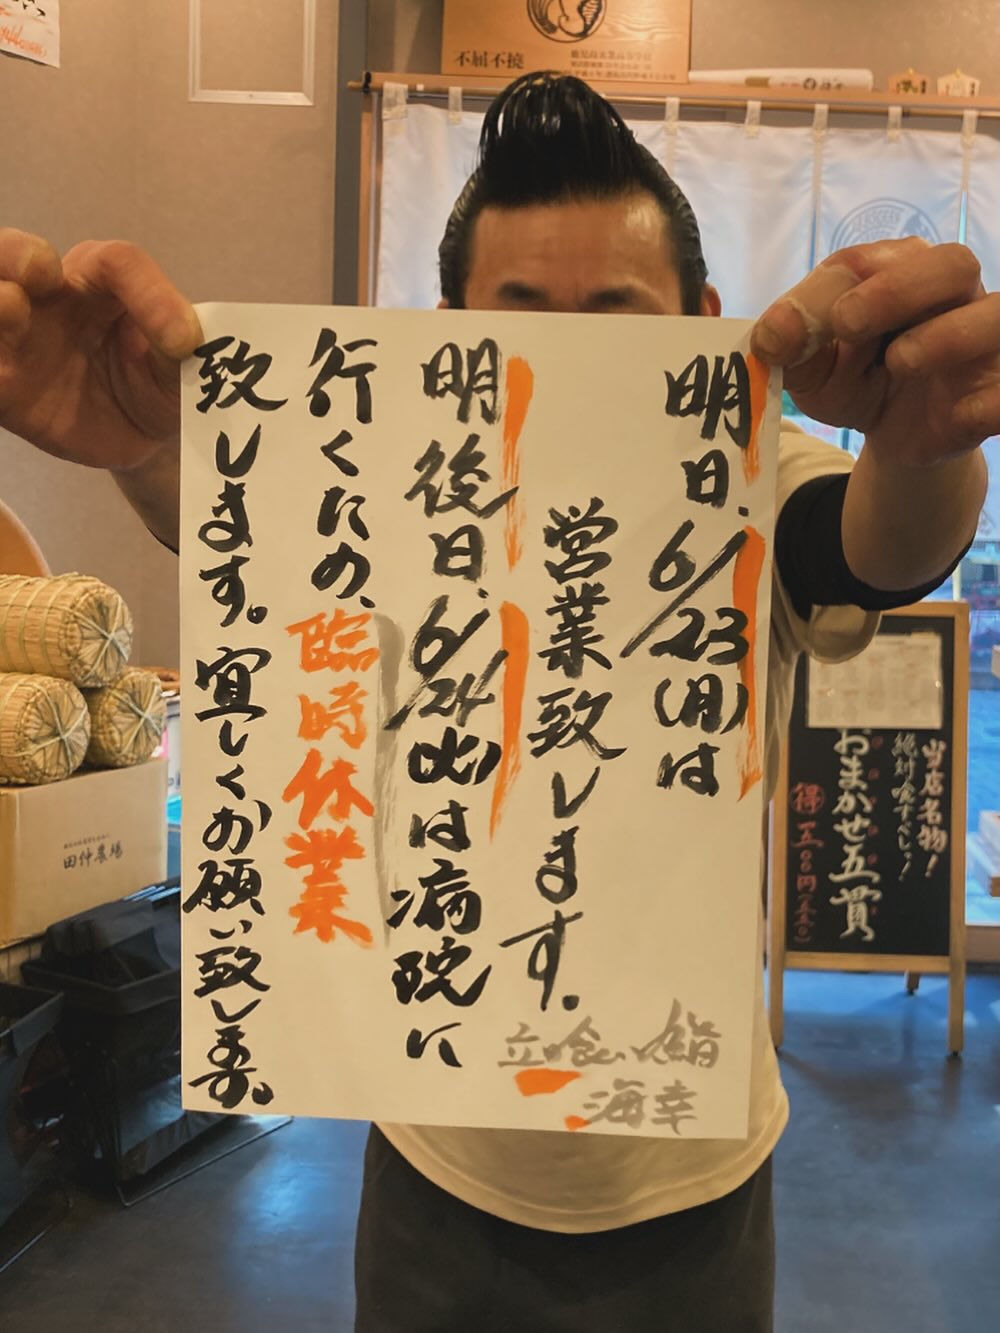 明日、6/23(月)は
営業致します。
明後日、6/24(火)は病院に
行くため、臨時休業
致します。宜しくお願い致します。
立喰い鮨
海幸
不屈不撓
当店名物！
絶対喰すべし！
おまかせ五貫
得
田仲農場